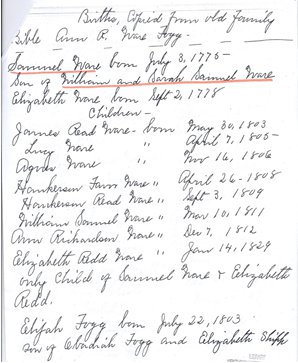 Births, Copied from old family
Bible Ann R. Ware Fogg.
Samuel Ware born July 3, 1775-
Son of William and Sarah Samuel Ware
Elizabeth Ware born Sept 2, 1778
Children-
James Read Ware- born May 30, 1803
Lucy Ware " April 7, 1805-
Agnes Ware " Nov 16, 1806
Hankerson Ware " April 26-1808
Hankerson Read Ware " Sept 3, 1809
William Samuel Ware " Mar 10, 1811
Ann Richardson Ware " Dec 7, 1812
Elizabeth Redd Ware " Jan 14, 1829
only Child of Samuel Ware & Elizabeth
Redd.
Elijah Fogg born July 22, 1803
son of Obadiah Fogg and Elizabeth Shipp